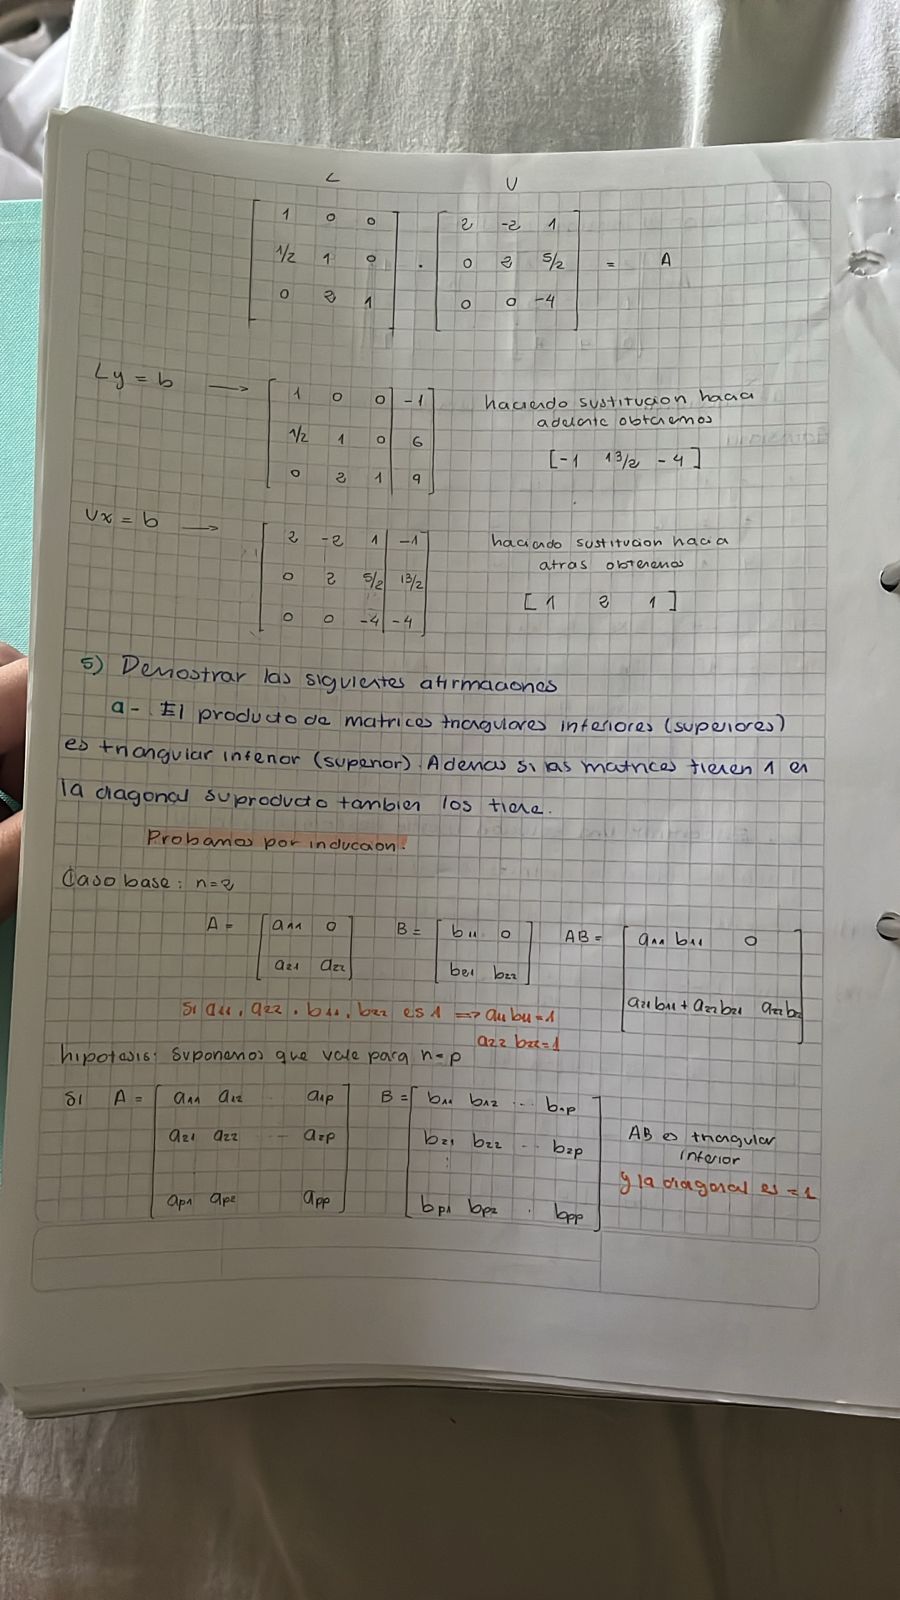 L U
[1 0 0] . [2 -2 1] = A
[1/2 1 0] [0 2 5/2]
[0 2 1] [0 0 -4]
Ly = b → [1 0 0 | -1] haciendo sustitucion hacia
adelante obtenemos
[1/2 1 0 | 6]
[-1 13/2 -4]
[0 2 1 | 9]
Ux = b → [2 -2 1 | -1] haciendo sustitucion hacia
atras obtenemos
[0 2 5/2 | 13/2]
[1 2 1]
[0 0 -4 | -4]
5) Demostrar las siguientes afirmaciones
a- El producto de matrices triangulares inferiores (superiores)
es triangular inferior (superior). Ademas si las matrices tienen 1 en
la diagonal su producto tambien los tiene.
Probamos por induccion:
Caso base: n=2
A = [a11 0] B = [b11 0] AB = [a11 b11 0]
[a21 a22] [b21 b22] [a21 b11 + a22 b21 a22 b22]
Si a11, a22, b11, b22 es 1 => a11 b11 = 1
a22 b22 = 1
hipotesis: suponemos que vale para n=p
Si A = [a11 a12 ... a1p] B = [b11 b12 ... b1p]
[a21 a22 ... a2p] [b21 b22 ... b2p] AB es triangular
inferior
y la diagonal es = 1
[ap1 ap2 app] [bp1 bp2 . bpp]